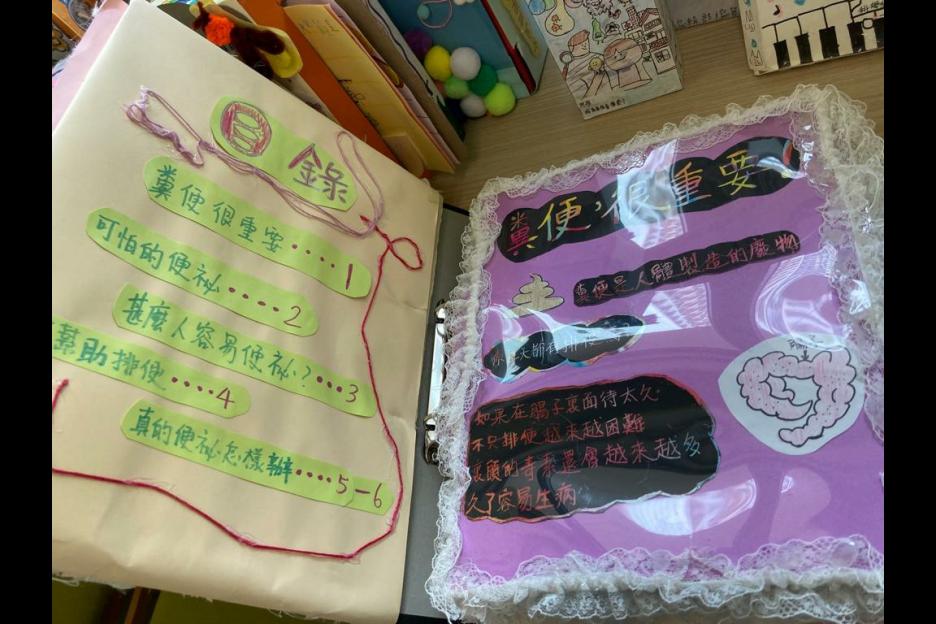 目錄
糞便很重要....1
可怕的便祕....2
甚麼人容易便祕?...3
幫助排便....4
真的便祕怎樣辦....5-6
糞便,很重要!
糞便是人體製造的廢物
如果在腸子裏面待太久
不只排便越來越困難
裏頭的毒素還會越來越多
久了容易生病